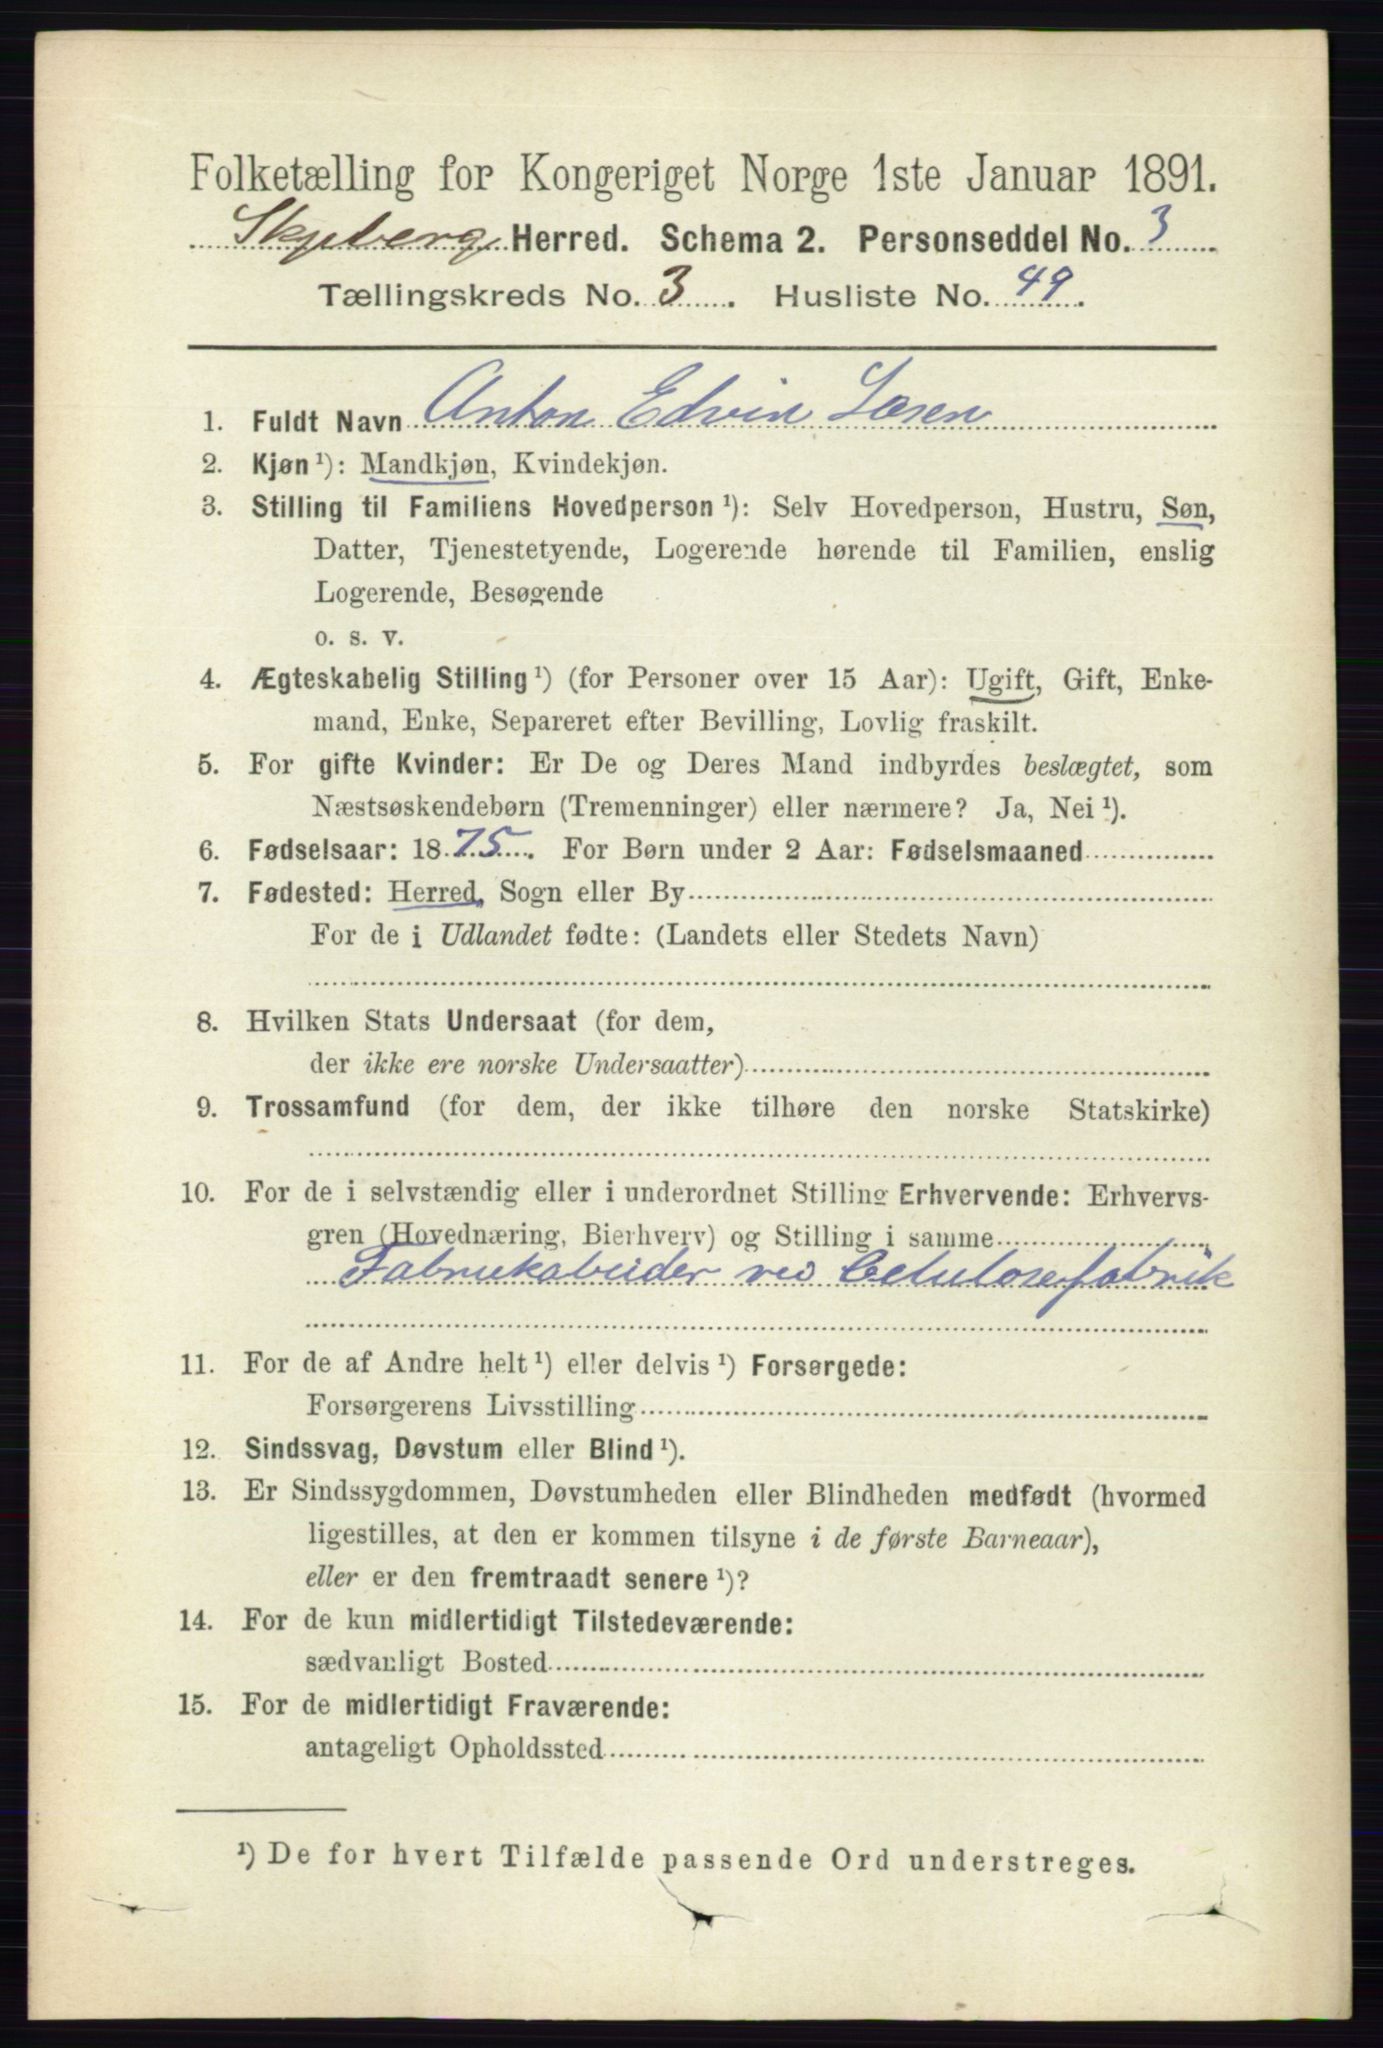 Folketælling for Kongeriget Norge 1ste Januar 1891.
Skjeberg Herred. Schema 2. Personseddel No. 3
Tællingskreds No. 3. Husliste No. 49.
1. Fuldt Navn Anton Edvin Larsen
2. Kjøn ¹): Mandkjøn, Kvindekjøn.
3. Stilling til Familiens Hovedperson ¹): Selv Hovedperson, Hustru, Søn,
Datter, Tjenestetyende, Logerende hørende til Familien, enslig
Logerende, Besøgende
o. s. v.
4. Ægteskabelig Stilling ¹) (for Personer over 15 Aar): Ugift, Gift, Enke-
mand, Enke, Separeret efter Bevilling, Lovlig fraskilt.
5. For gifte Kvinder: Er De og Deres Mand indbyrdes beslægtet, som
Næstsøskendebørn (Tremenninger) eller nærmere? Ja, Nei ¹).
6. Fødselsaar: 1875. For Børn under 2 Aar: Fødselsmaaned
7. Fødested: Herred, Sogn eller By
For de i Udlandet fødte: (Landets eller Stedets Navn)
8. Hvilken Stats Undersaat (for dem,
der ikke ere norske Undersaatter)
9. Trossamfund (for dem, der ikke tilhøre den norske Statskirke)
10. For de i selvstændig eller i underordnet Stilling Erhvervende: Erhvervs-
gren (Hovednæring, Bierhverv) og Stilling i samme
Fabrikabeider ved Celulosefabrik
11. For de af Andre helt ¹) eller delvis ¹) Forsørgede:
Forsørgerens Livsstilling
12. Sindssvag, Døvstum eller Blind ¹).
13. Er Sindssygdommen, Døvstumheden eller Blindheden medfødt (hvormed
ligestilles, at den er kommen tilsyne i de første Barneaar),
eller er den fremtraadt senere ¹)?
14. For de kun midlertidigt Tilstedeværende:
sædvanligt Bosted
15. For de midlertidigt Fraværende:
antageligt Opholdssted
¹) De for hvert Tilfælde passende Ord understreges.